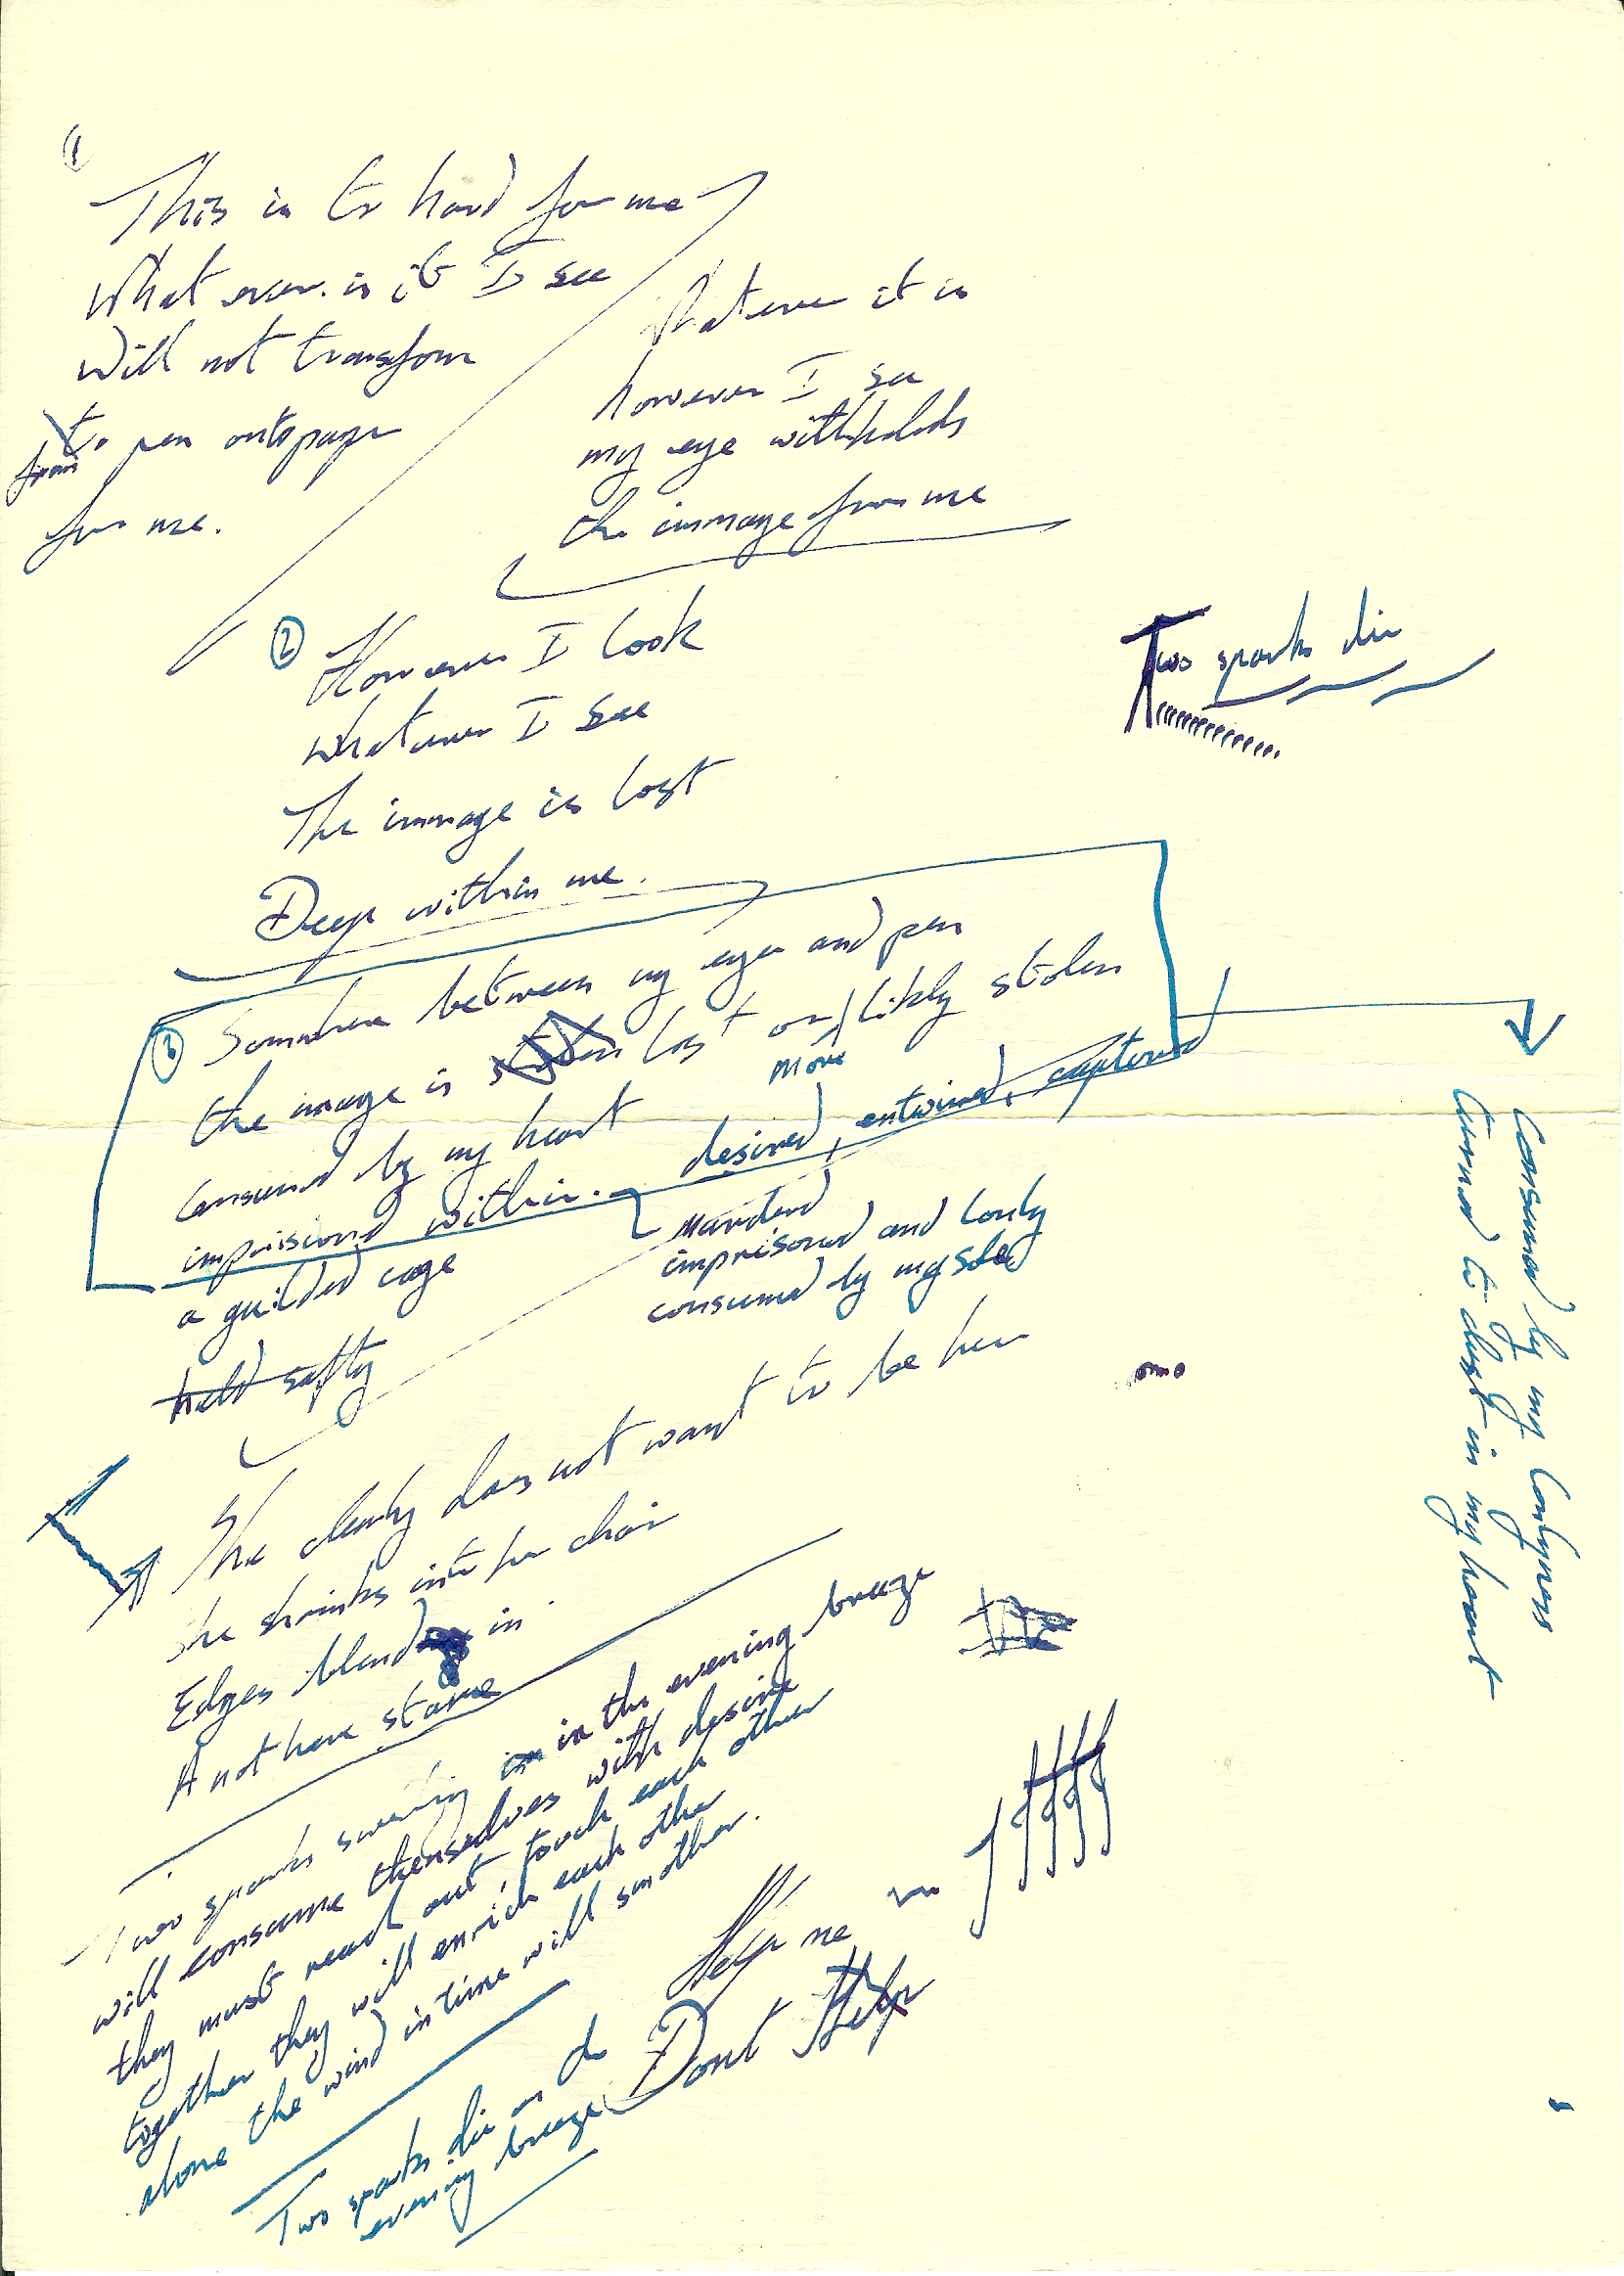 1
This is to hard for me
What ever is it I see
Will not transform
to pen onto page
from
for me.
Whatever it is
however I see
my eye withholds
the immage from me
2
However I look
whatever I see
The immage is lost
Deep within me.
Two sparks die
3
Somwhere between my eye and pen
the image is stolen lost or likly stolen
more
Consumed by my heart
imprissiond within. desired, entwined, captured
a guilded cage
held safty
imprisoned and lonly
consumed by my
Consumed by my lonlyness
turned to dust in my heart
She clearly does not want to be her
She shrinks into her chair
Edges blend in
A not here stare
Two sparks in the evening breeze
will consume themselves with desire
they must reach out, touch each other
together they will enrich each other
alone the wind in time will smother.
Two sparks die on the
evening breeze
Help me
Dont Help